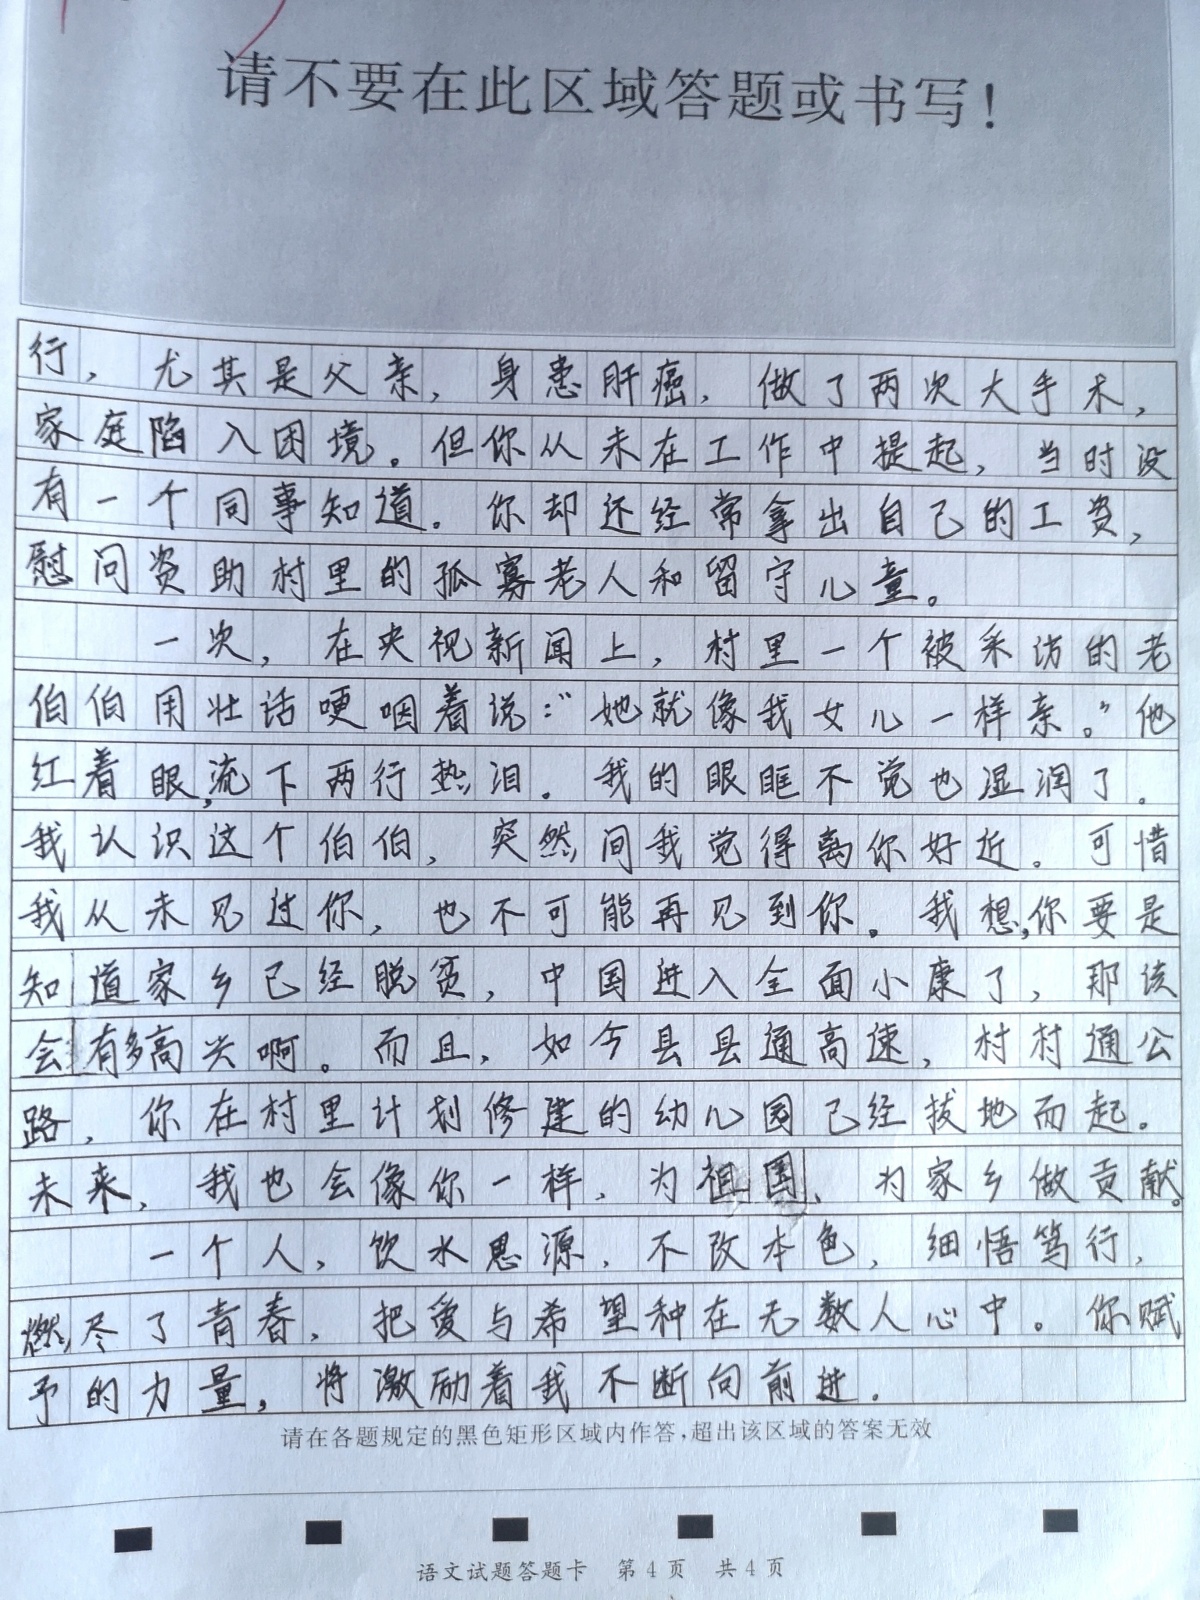 请不要在此区域答题或书写!
行，尤其是父亲，身患肝癌，做了两次大手术，
家庭陷入困境。但你从未在工作中提起，当时没
有一个同事知道。你却还经常拿出自己的工资，
慰问资助村里的孤寡老人和留守儿童。
一次，在央视新闻上，村里一个被采访的老
伯伯用壮话哽咽着说：“她就像我女儿一样亲。”他
红着眼，流下两行热泪。我的眼眶不觉也湿润了。
我认识这个伯伯，突然间我觉得离你好近。可惜
我从未见过你，也不可能再见到你。我想，你要是
知道家乡已经脱贫，中国进入全面小康了，那该
会有多高兴啊。而且，如今县县通高速，村村通公
路，你在村里计划修建的幼儿园已经拔地而起。
未来，我也会像你一样，为祖国、为家乡做贡献。
一个人，饮水思源，不改本色，细悟笃行，
燃尽了青春，把爱与希望种在无数人心中。你赋
予的力量，将激励着我不断向前进。
请在各题规定的黑色矩形区域内作答，超出该区域的答案无效
语文试题答题卡 第4页 共4页